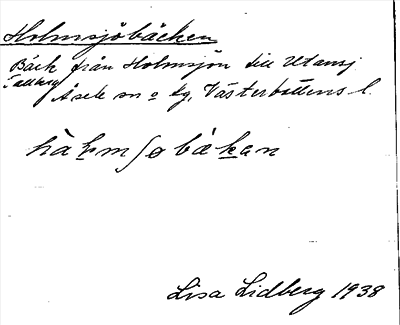 Holmsjöbäcken
Bäck från Holmsjön till Utansj.
Tallberg
Åsele sn o tg, Västerbottens l.
håḷmʃøbäkan
Lisa Lidberg 1938